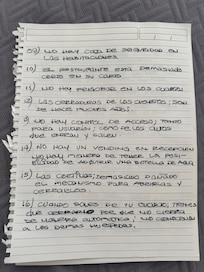 09) NO HAY CAJA DE SEGURIDAD EN
LAS HABITACIONES.
10) EL RESTAURANTE ESTA DEMASIADO
CERCA EN SU CUARTO
11) NO HAY PERSIANAS EN LOS CUARTOS
12) LAS CERRADURAS DE LOS CLOSETS, SON
DE HACE MUCHOS AÑOS.
NO HAY CONTROL DE ACCESO, TANTO
PARA USUARIOS, COMO DE LOS AUTOS
QUE ENTRAN Y SALEN
14) NO HAY UN VENDING EN RECEPCION
NO HAY MANERA DE TENER LA POSI-
BILIDAD DE ADQUIRIR UNA BOTELLA DE AGUA
15) LAS CORTINAS, DEMASIADO DAÑADO
EL MECANISMO PARA ABRIRLAS Y
CERRARLAS.
16) CUANDO SALES DE TU CUARTO, TIENES
QUE CERRARLO POR QUE NO CIERRA
DE MANERA AUTOMATICA,
A LOS DEMAS HUESPEDES.